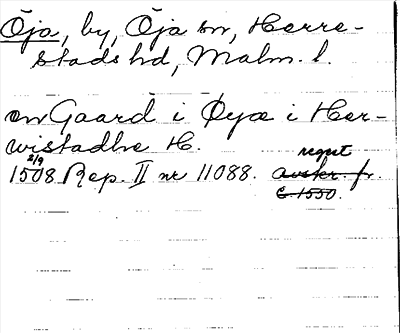 Öja, by, Öja sn, Herre-
stads hd, Malm. l.
en Gaard i Øyæ i Her-
wistadhe H.
2/9 regest
1508 Rep. II nr 11088. avskr. fr.
c. 1550.